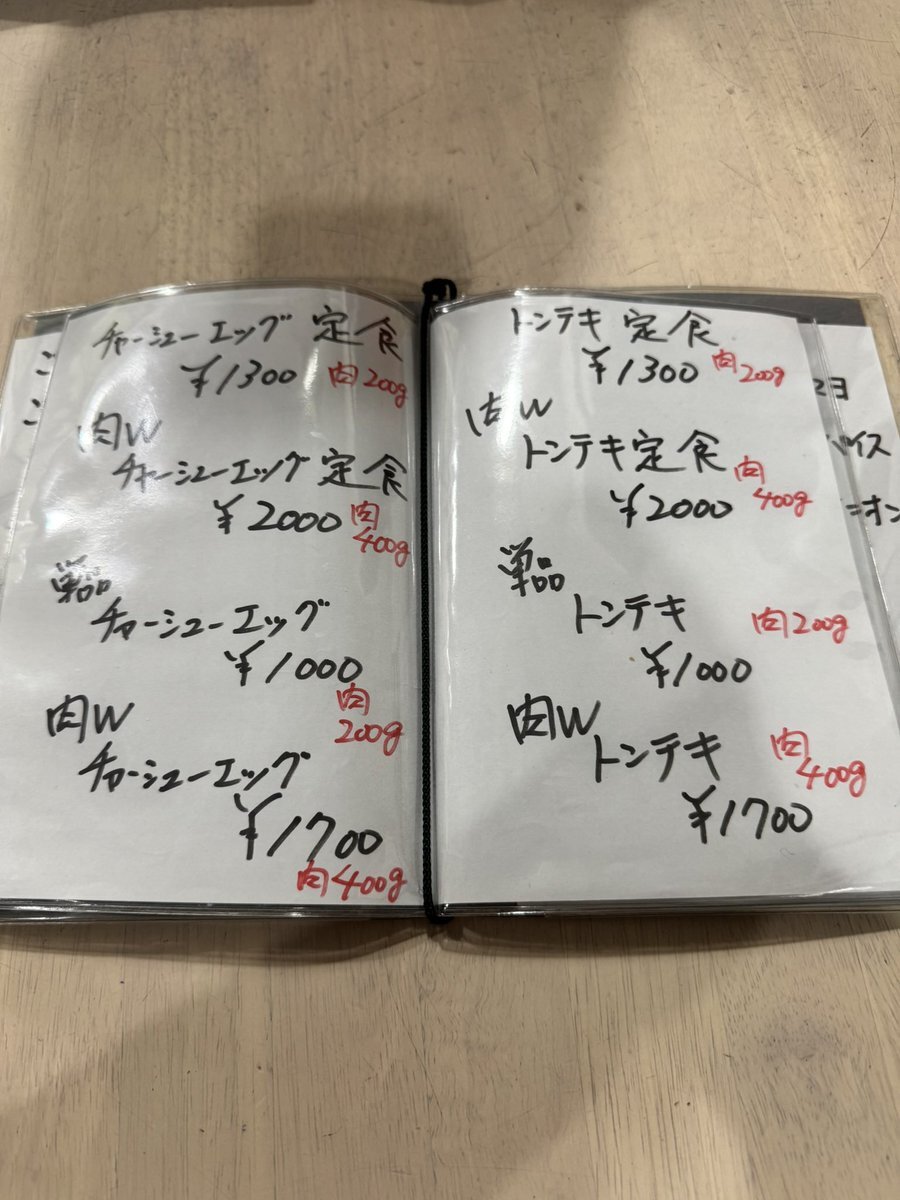 チャーシューエッグ 定食
¥1300 肉200g
肉W
チャーシューエッグ 定食
¥2000 肉400g
単品
チャーシューエッグ
¥1000
肉200g
肉W
チャーシューエッグ
¥1700
肉400g
トンテキ 定食
¥1300 肉200g
肉W
トンテキ定食
¥2000 肉400g
単品
トンテキ 肉200g
¥1000
肉W
トンテキ 肉400g
¥1700